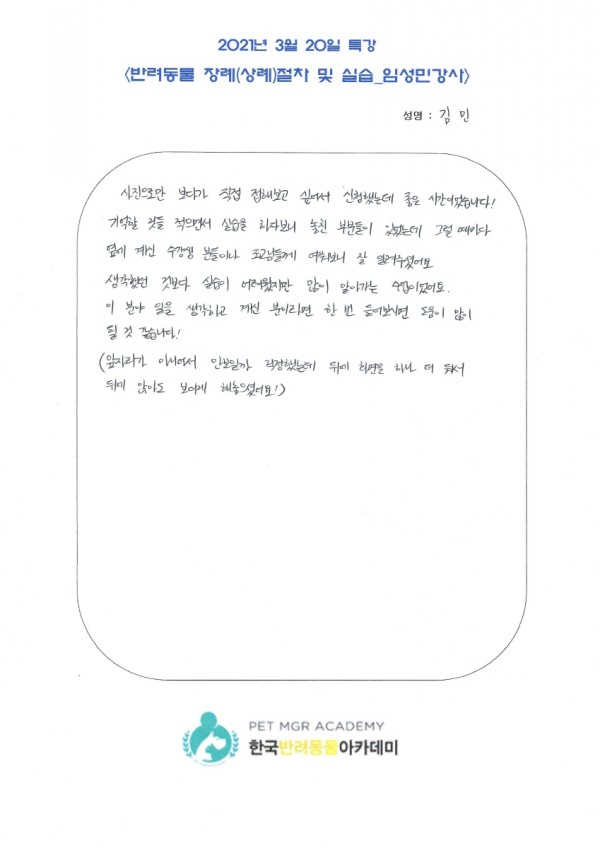 2021년 3월 20일 특강
<반려동물 장례(상례)절차 및 실습_임성민강사>
성명 : 김 민
사진으로만 보다가 직접 접해보고 싶어서 신청했는데 좋은 시간이었습니다!
기억할 것들 적으면서 실습을 하다보니 놓친 부분들이 있었는데 그럴 때마다
옆에 계신 수강생 분들이나 조교님들께 여쭤보니 잘 알려주셨어요
생각했던 것보다 실습이 어려웠지만 많이 알아가는 수업이었어요.
이 분야 일을 생각하고 계신 분이라면 한 번 들어보시면 도움이 많이
될 것 같습니다!
(앞자리가 아니여서 안보일까 걱정했는데 뒤에 화면을 하나 더 둬서
뒤에 앉아도 보이게 해놓으셨어요!)
PET MGR ACADEMY
한국반려동물아카데미